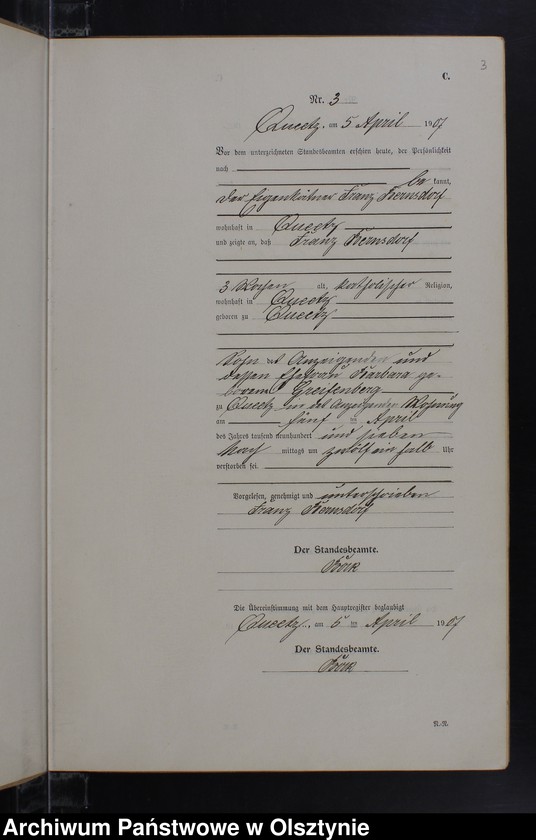 3
C.
Nr. 3
Queetz, am 5 April 1907
Vor dem unterzeichneten Standesbeamten erschien heute, der Persönlichkeit
nach
be kannt,
der Eigenkätner Franz Kernsdorf
wohnhaft in Queetz
und zeigte an, daß Franz Kernsdorf
3 Wochen alt, katholischer Religion,
wohnhaft in Queetz
geboren zu Queetz
Sohn des Anzeigenden und
dessen Ehefrau Barbara ge-
borene Greifenberg
zu Queetz in des Anzeigenden Wohnung
am fünf ten April
des Jahrs tausend neunhundert und sieben
Nach mittags um zwölf ein halb Uhr
verstorben sei.
Vorgelesen, genehmigt und unterschrieben
Franz Kernsdorf
Der Standesbeamte.
Die Übereinstimmung mit dem Hauptregister beglaubigt
Queetz, am 5 ten April 1907
Der Standesbeamte.
Archiwum Państwowe w Olsztynie